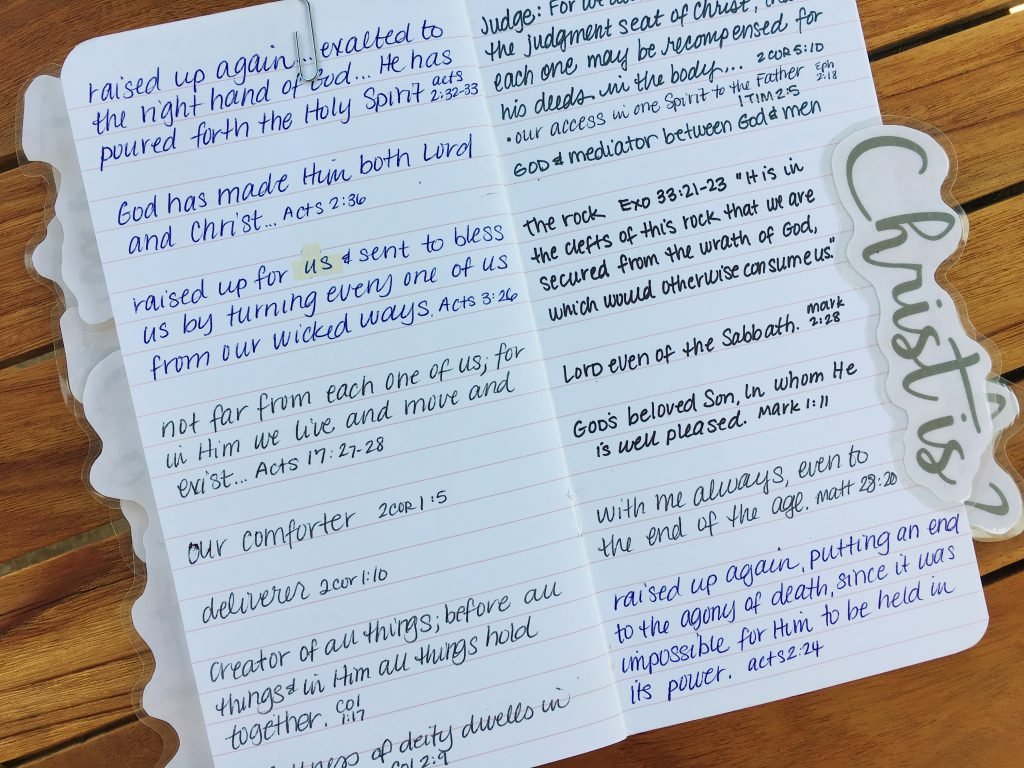 raised up again... exalted to
the right hand of God... He has
poured forth the Holy Spirit acts
2:32-33
God has made Him both Lord
and Christ... Acts 2:36
raised up for us & sent to bless
us by turning every one of us
from our wicked ways. Acts 3:26
not far from each one of us; for
in Him we live and move and
exist... Acts 17:27-28
our comforter 2COR 1:5
deliverer 2cor 1:10
creator of all things; before all
things & in Him all things hold
together. Col
1:17
of deity dwells in
Col 2:9
Judge: For we
the judgment seat of Christ,
each one may be recompensed for
his deeds in the body... 2COR 5:10
•our access in one Spirit to the Father Eph
2:18
1 TIM 2:5
GOD & mediator between God & men
the rock Exo 33:21-23 "It is in
the clefts of this rock that we are
secured from the wrath of God,
which would otherwise consume us."
Lord even of the Sabbath. mark
2:28
God's beloved Son, In whom He
is well pleased. Mark 1:11
with me always, even to
the end of the age. matt 28:20
raised up again, putting an end
to the agony of death, since it was
impossible for Him to be held in
its power. acts 2:24
Christ is